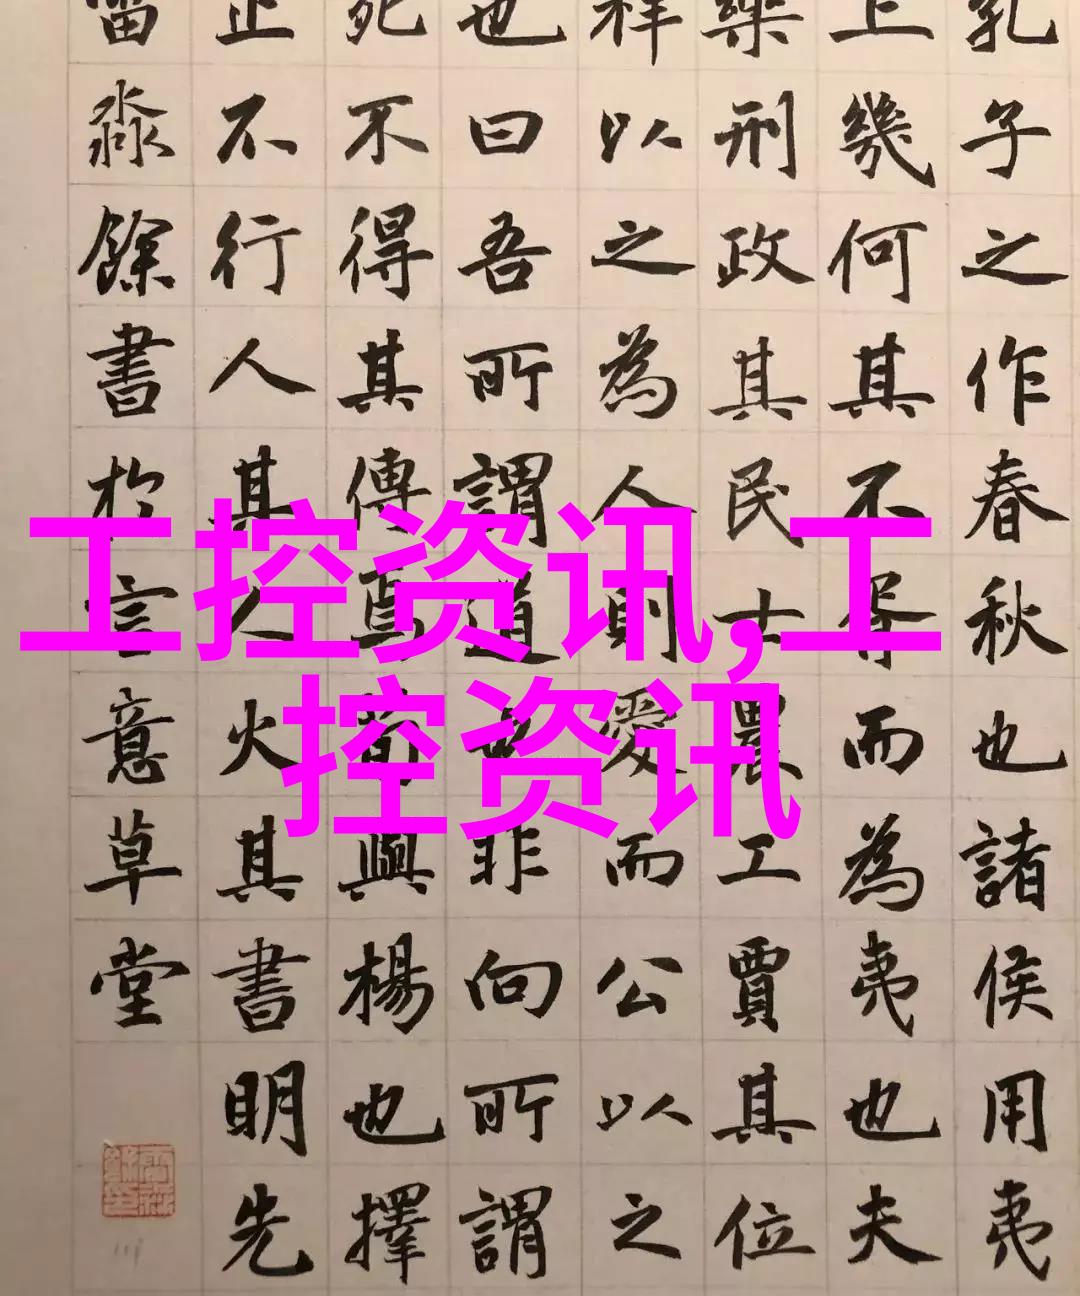 孔子之作春秋也諸侯用夷
上幾何其不胥而為夷也夫
樂刑政其民士農工賈其位
祥以之為人則愛而公以之
也曰吾所謂道也非向所謂
死不得其傳焉荀與楊也擇
止不行人其人火其書明先
淼餘書於言意草堂
工控资讯,工
控资讯